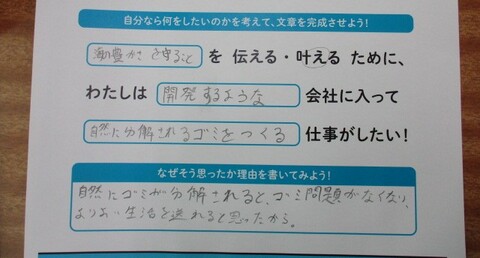 自分なら何をしたいのかを考えて、文章を完成させよう!
海の豊かさを守ること を 伝える・叶える ために、
わたしは 開発するような 会社に入って
自然に分解されるゴミをつくる 仕事がしたい!
なぜそう思ったか理由を書いてみよう!
自然にゴミが分解されると、ゴミ問題がなくなり、
よりよい生活を送れると思ったから。